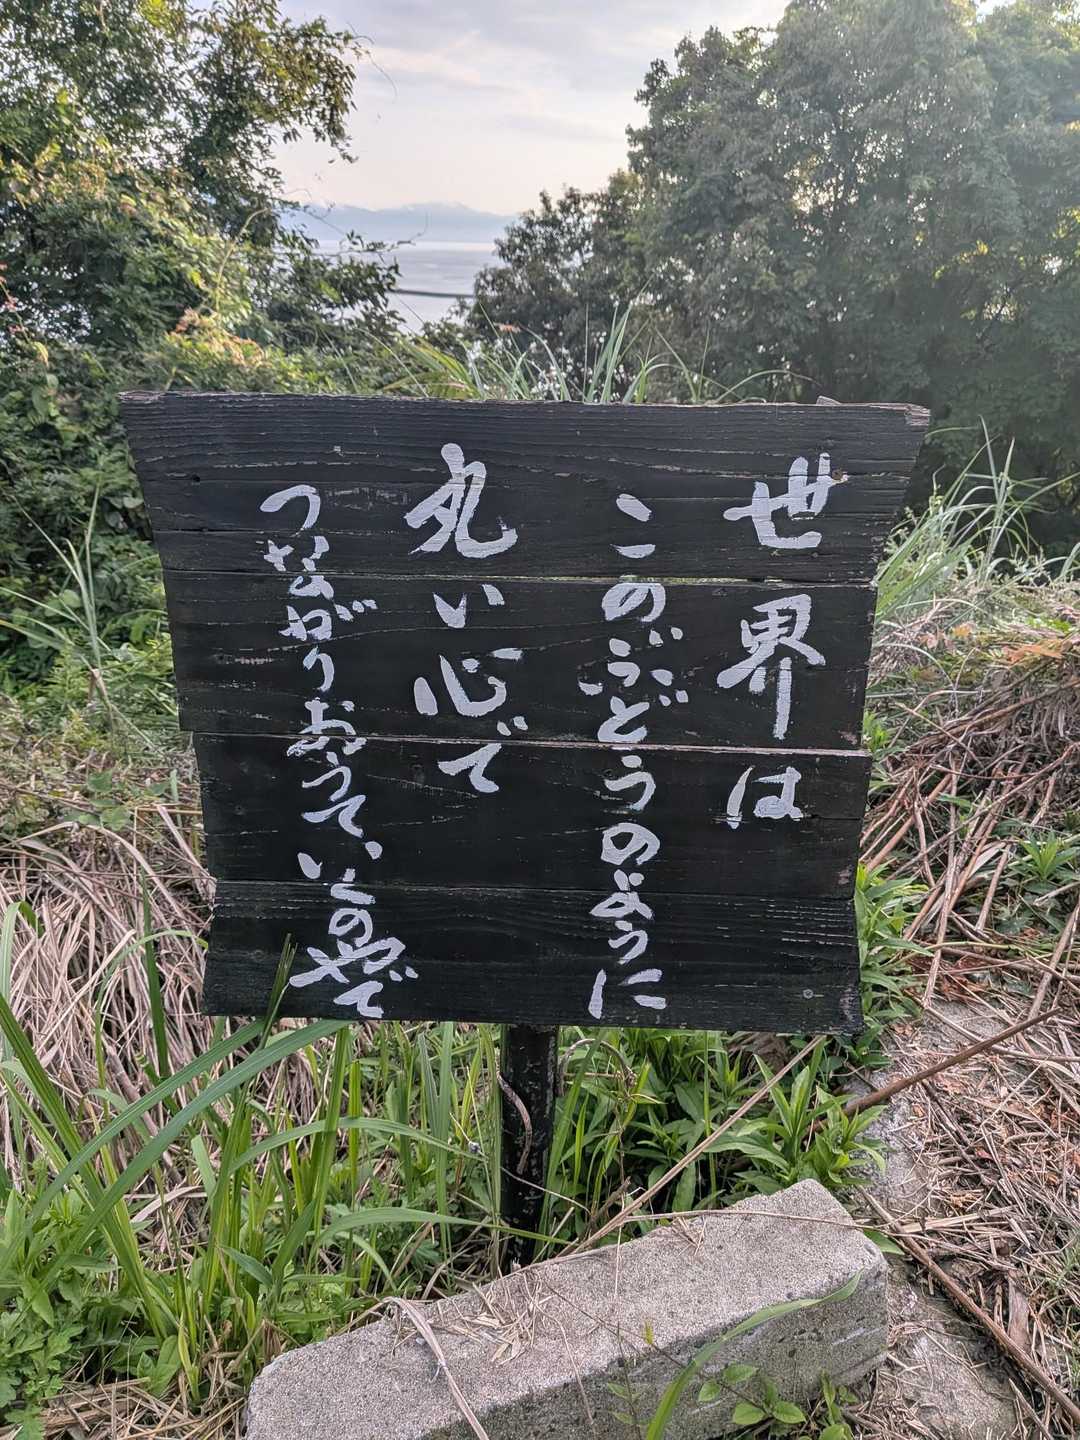 世界は
このぶどうのように
丸い心で
つながりおうて、いくのやで